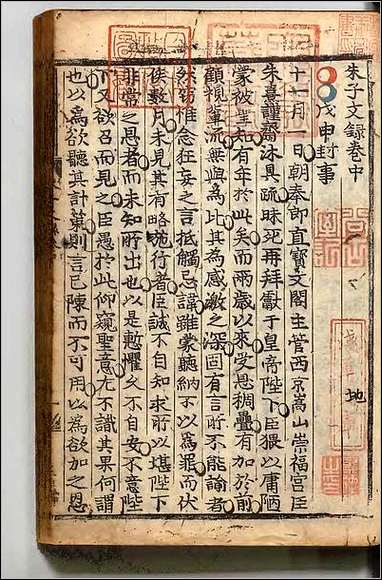 朱子文錄卷中
戊申封事
十一月一日朝奉郎直寶文閣主管西京嵩山崇福宮臣
朱熹謹齋沐具疏昧死再拜獻于皇帝陛下臣猥以庸陋
蒙被聖知有年於此矣而兩歲以來受恩稠疊有加於前
顧視輩流無與為比其為感激之深固有言所不能論者
然竊惟念狂妄之言抵觸忌諱雖蒙聽納不以為罪而伏
俟數月未見其有略施行者臣誠不自知求所以堪陛下
非常之恩者而未知所出也以是慙懼久不自安不意陛
下又欲召而見之臣愚於此仰窺聖意尤不識其果何謂
也以為欲聽其計策則言已陳而不可用以為欲加之恩
地